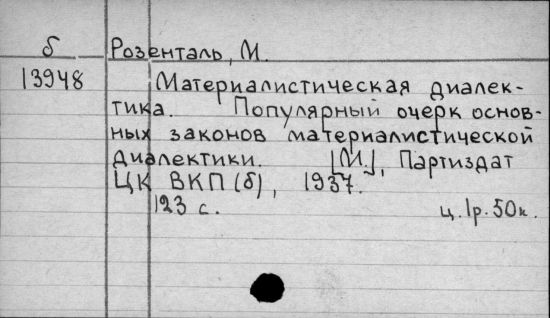 б Розенталь, М.
13948 Материалистическая диалек-
тика. Популярный очерк основ-
ных законов материалистической
диалектики. [М.], Партиздат
ЦК ВКП(б), 1937.
123 с. ц. 1р. 50к.